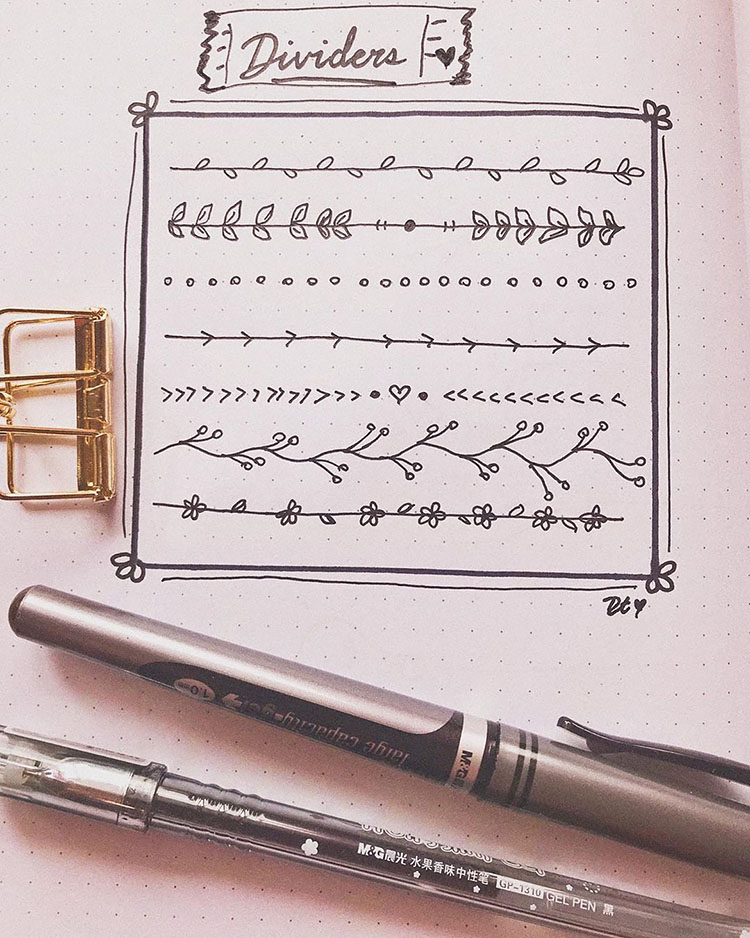 Dividers
1.0
large capacity-gel
M&G
M&G晨光 水果香味中性笔 GP-1310 GEL PEN 黑